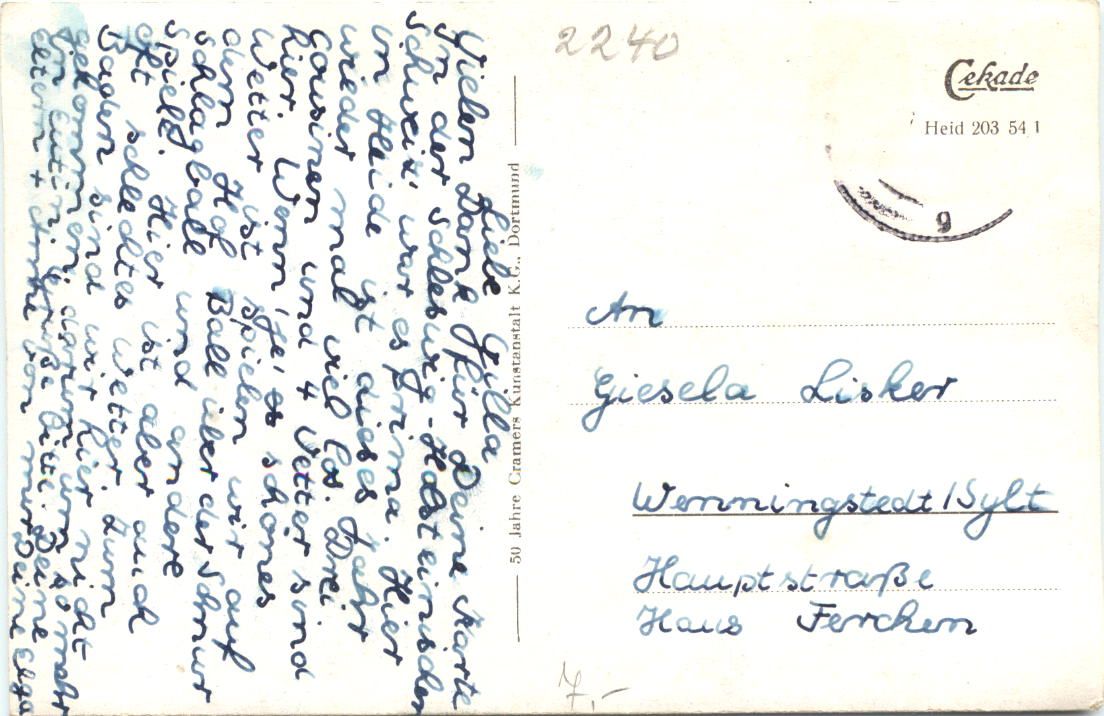 Liebe Gilla
Vielen Dank für Deine Karte
In der Schleswig-Holsteinischen
Schweiz war es prima. Hier
in Heide ist dieses Jahr
wieder mal viel los. Drei
Cousinen und 4 Vetter sind
hier. Wenn es schönes
Wetter ist spielen wir auf
dem Hof Ball über der Schnur
Schlagball und andere
Spiele. Hier ist aber auch
oft schlechtes Wetter. Zum
Baden sind wir hier nicht
gekommen, darum um so mehr
in Eutin. Grüße bitte Deine
Eltern + von mir Deine Elga
50 Jahre Cramers Kunstanstalt K.G., Dortmund
2240
Cekade
Heid 203 54 1
9
An
Giesela Lisker
Wenningstedt/Sylt
Hauptstraße
Haus Ferchen
7,-